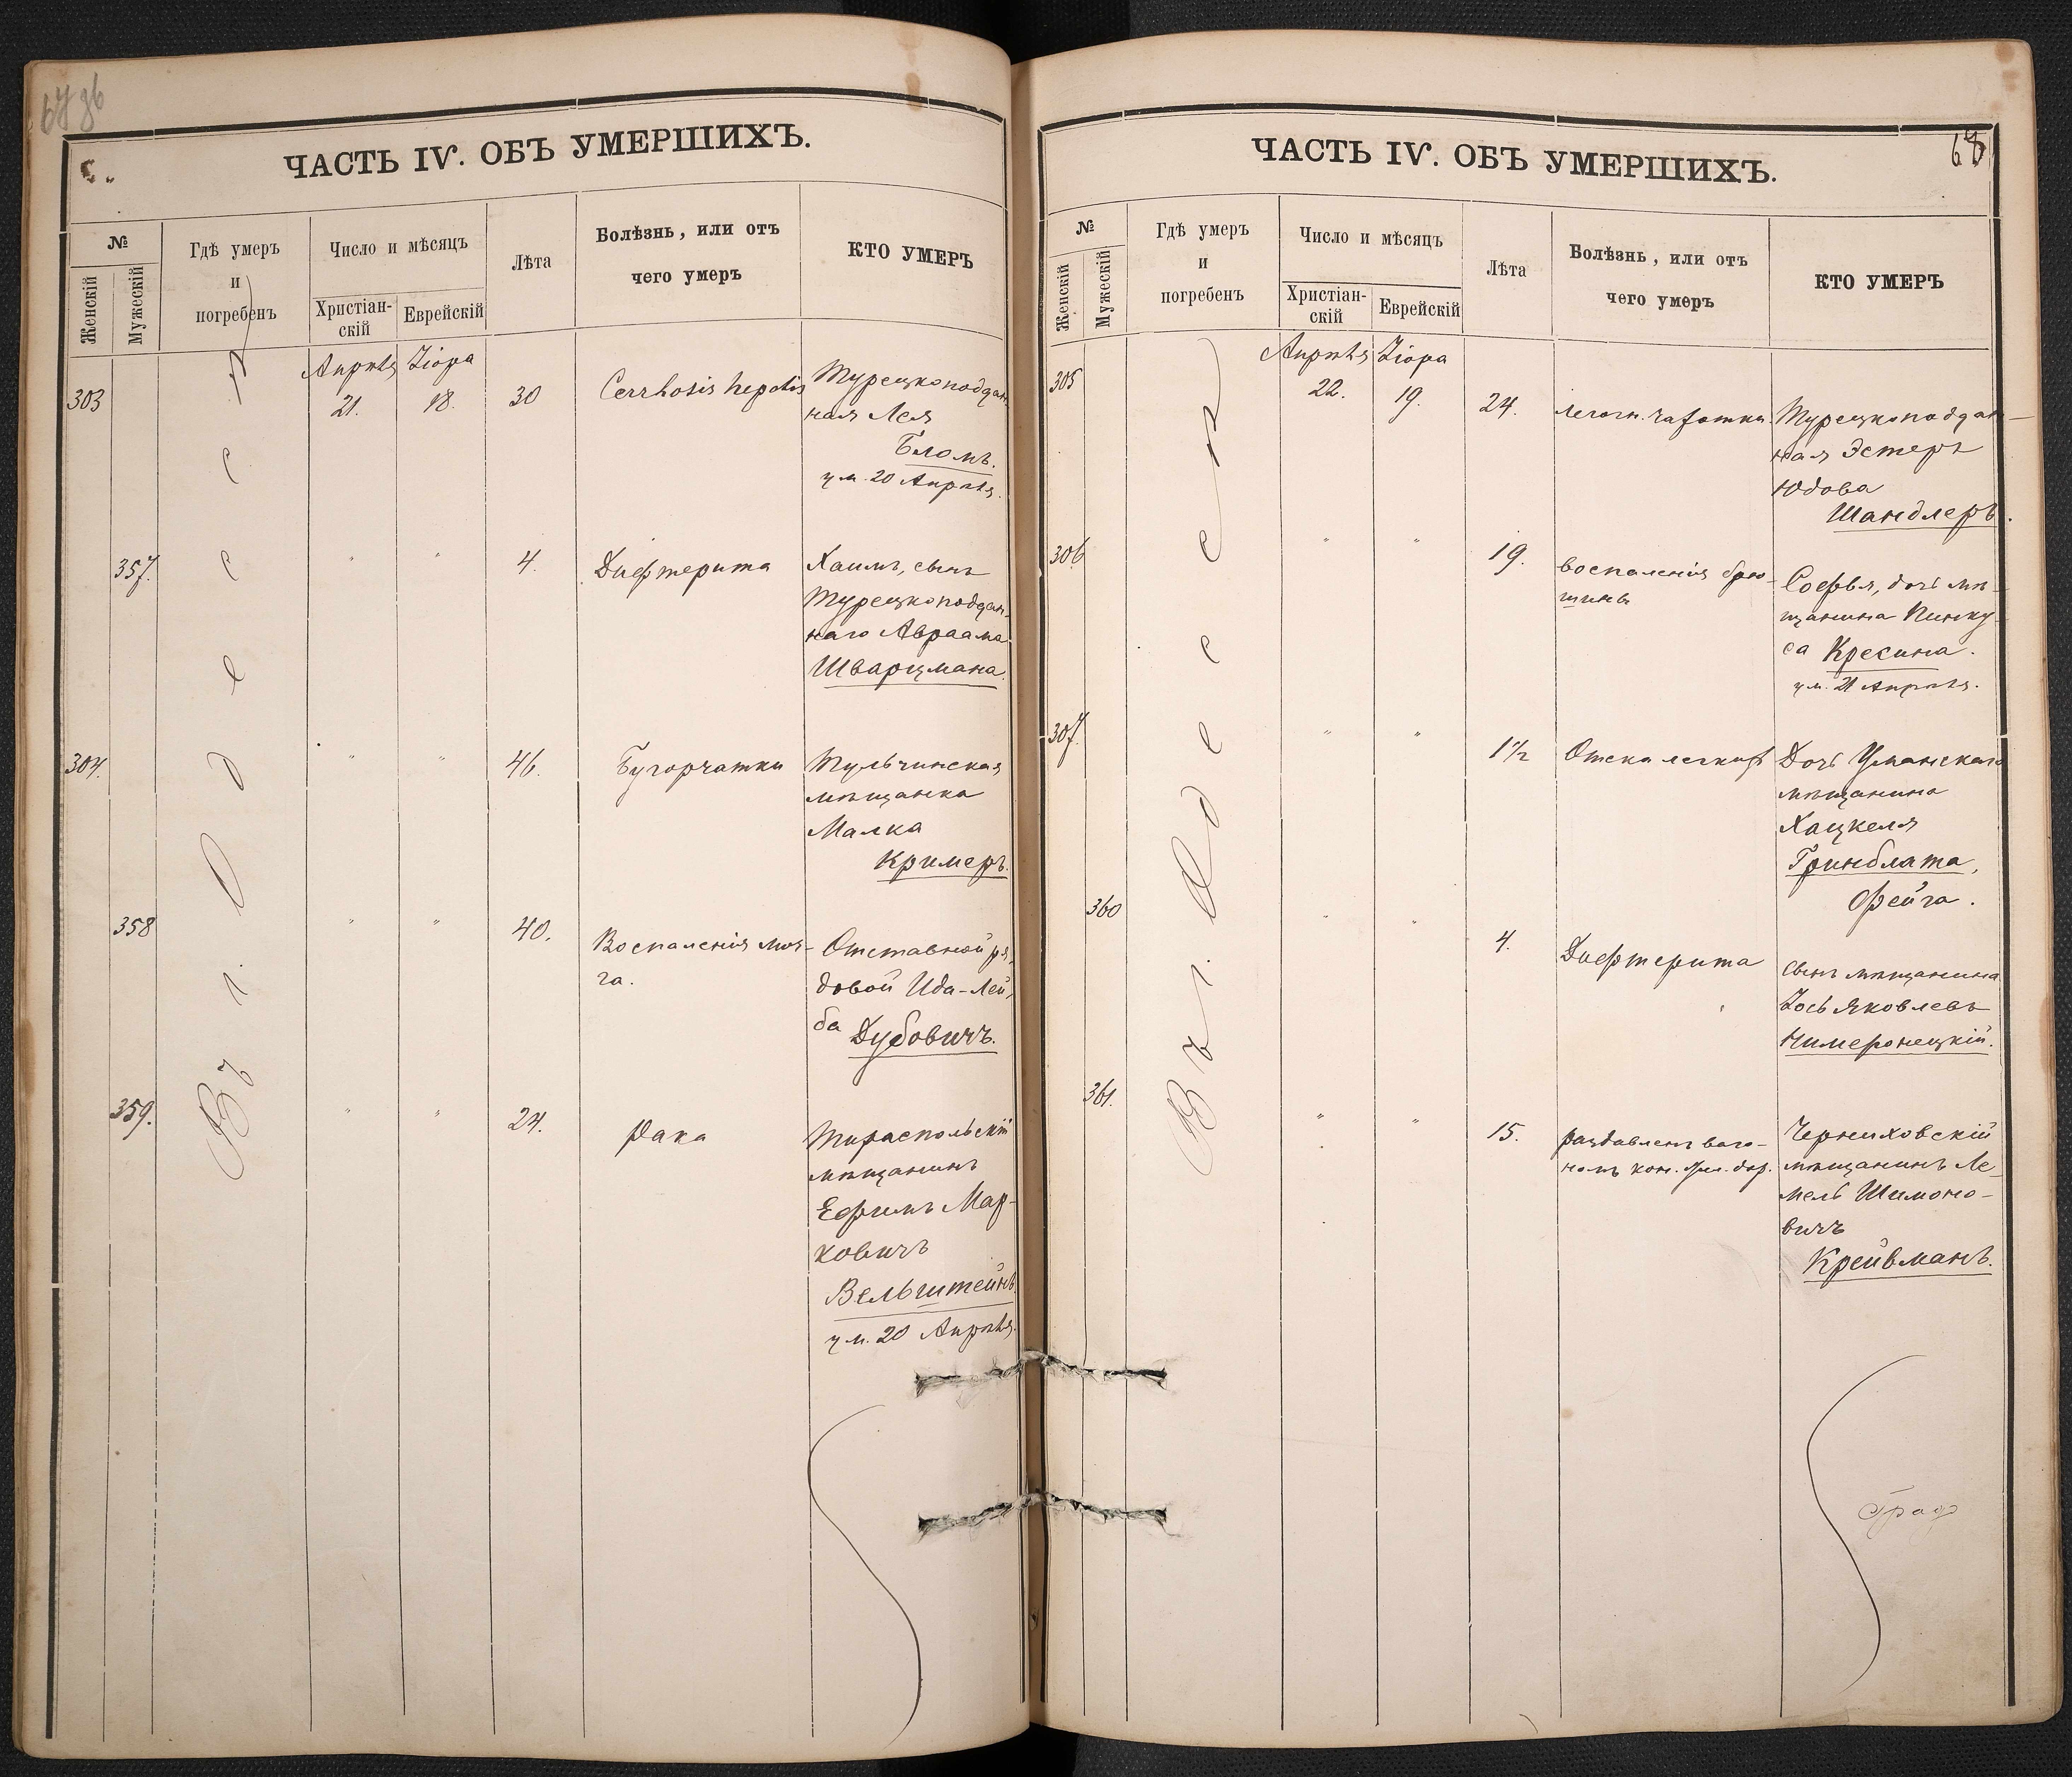 67 об
ЧАСТЬ IV. ОБЪ УМЕРШИХЪ.
№
Женскій
Мужескій
Гдѣ умеръ
и
погребенъ
Число и мѣсяцъ
Христіан-
скій
Еврейскій
Лѣта
Болѣзнь, или отъ
чего умеръ
КТО УМЕРЪ
Въ г. Одессѣ
Апрѣля Ііора
303 21. 18. 30 Cerrhosis hepatis Турецкоподдан-
ная Лея
Бломъ.
ум. 20 Апрѣля.
357. " " 4. Дифтерита Хаимъ, сынъ
Турецкоподдан-
наго Авраама
Шварцмана.
304. " " 46. Бугорчатки Тульчинская
мѣщанка
Малка
Кримеръ.
358 " " 40. Воспаленія моз-
га.
Отставной ря-
довой Ида-Лей-
ба Дубовичъ.
359. " " 24. Рака Тираспольскій
мѣщанинъ
Ефримъ Мар-
ковичъ
Вельштейнъ.
ум. 20 Апрѣля.
68
ЧАСТЬ IV. ОБЪ УМЕРШИХЪ.
№
Женскій
Мужескій
Гдѣ умеръ
и
погребенъ
Число и мѣсяцъ
Христіан-
скій
Еврейскій
Лѣта
Болѣзнь, или отъ
чего умеръ
КТО УМЕРЪ
Въ г. Одессѣ
Апрѣля Ііора
305 22. 19. 24. легочн. чахотки. Турецкоподдан-
ная Эстеръ
Юдова
Шандлеръ.
306 " " 19. воспаленія брю-
шины
Софья, дочь мѣ-
щанина Пинку-
са Кресина.
ум. 21 Апрѣля.
307. " " 1½ Отека легкихъ Дочь Уманскаго
мѣщанина
Хацкеля
Гринблата,
Фейга.
360 " " 4. Дифтерита сынъ мѣщанина
Іось Яковлевъ
Чимеронецкій.
361. " " 15. раздавленъ ваго-
номъ кон. жел. дор.
Черниховскій
мѣщанинъ Ле-
мель Шимоно-
вичъ
Крейвманъ.